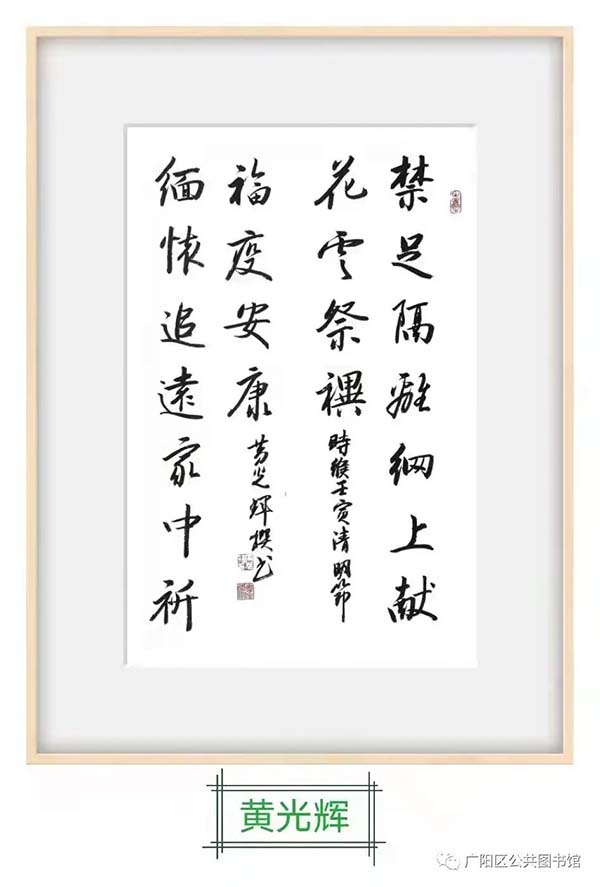 禁足隔離網上献
花雲祭禩
時候壬寅清明節
緬懷追遠家中祈
福疫安康
黄光輝撰书
黄光辉
广阳区公共图书馆